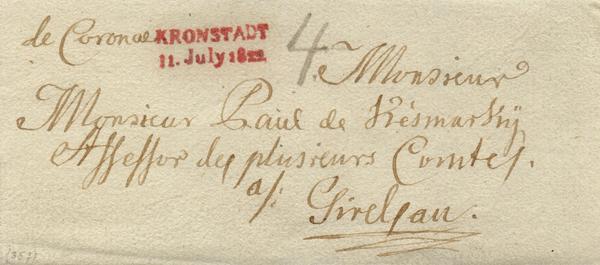 de Coronae
KRONSTADT
11. July 1822
4
Monsieur
Monsieur Paul de Késmarkÿ
Assessor des plusieurs Comtes.
a/:
Girelsau.
(357)